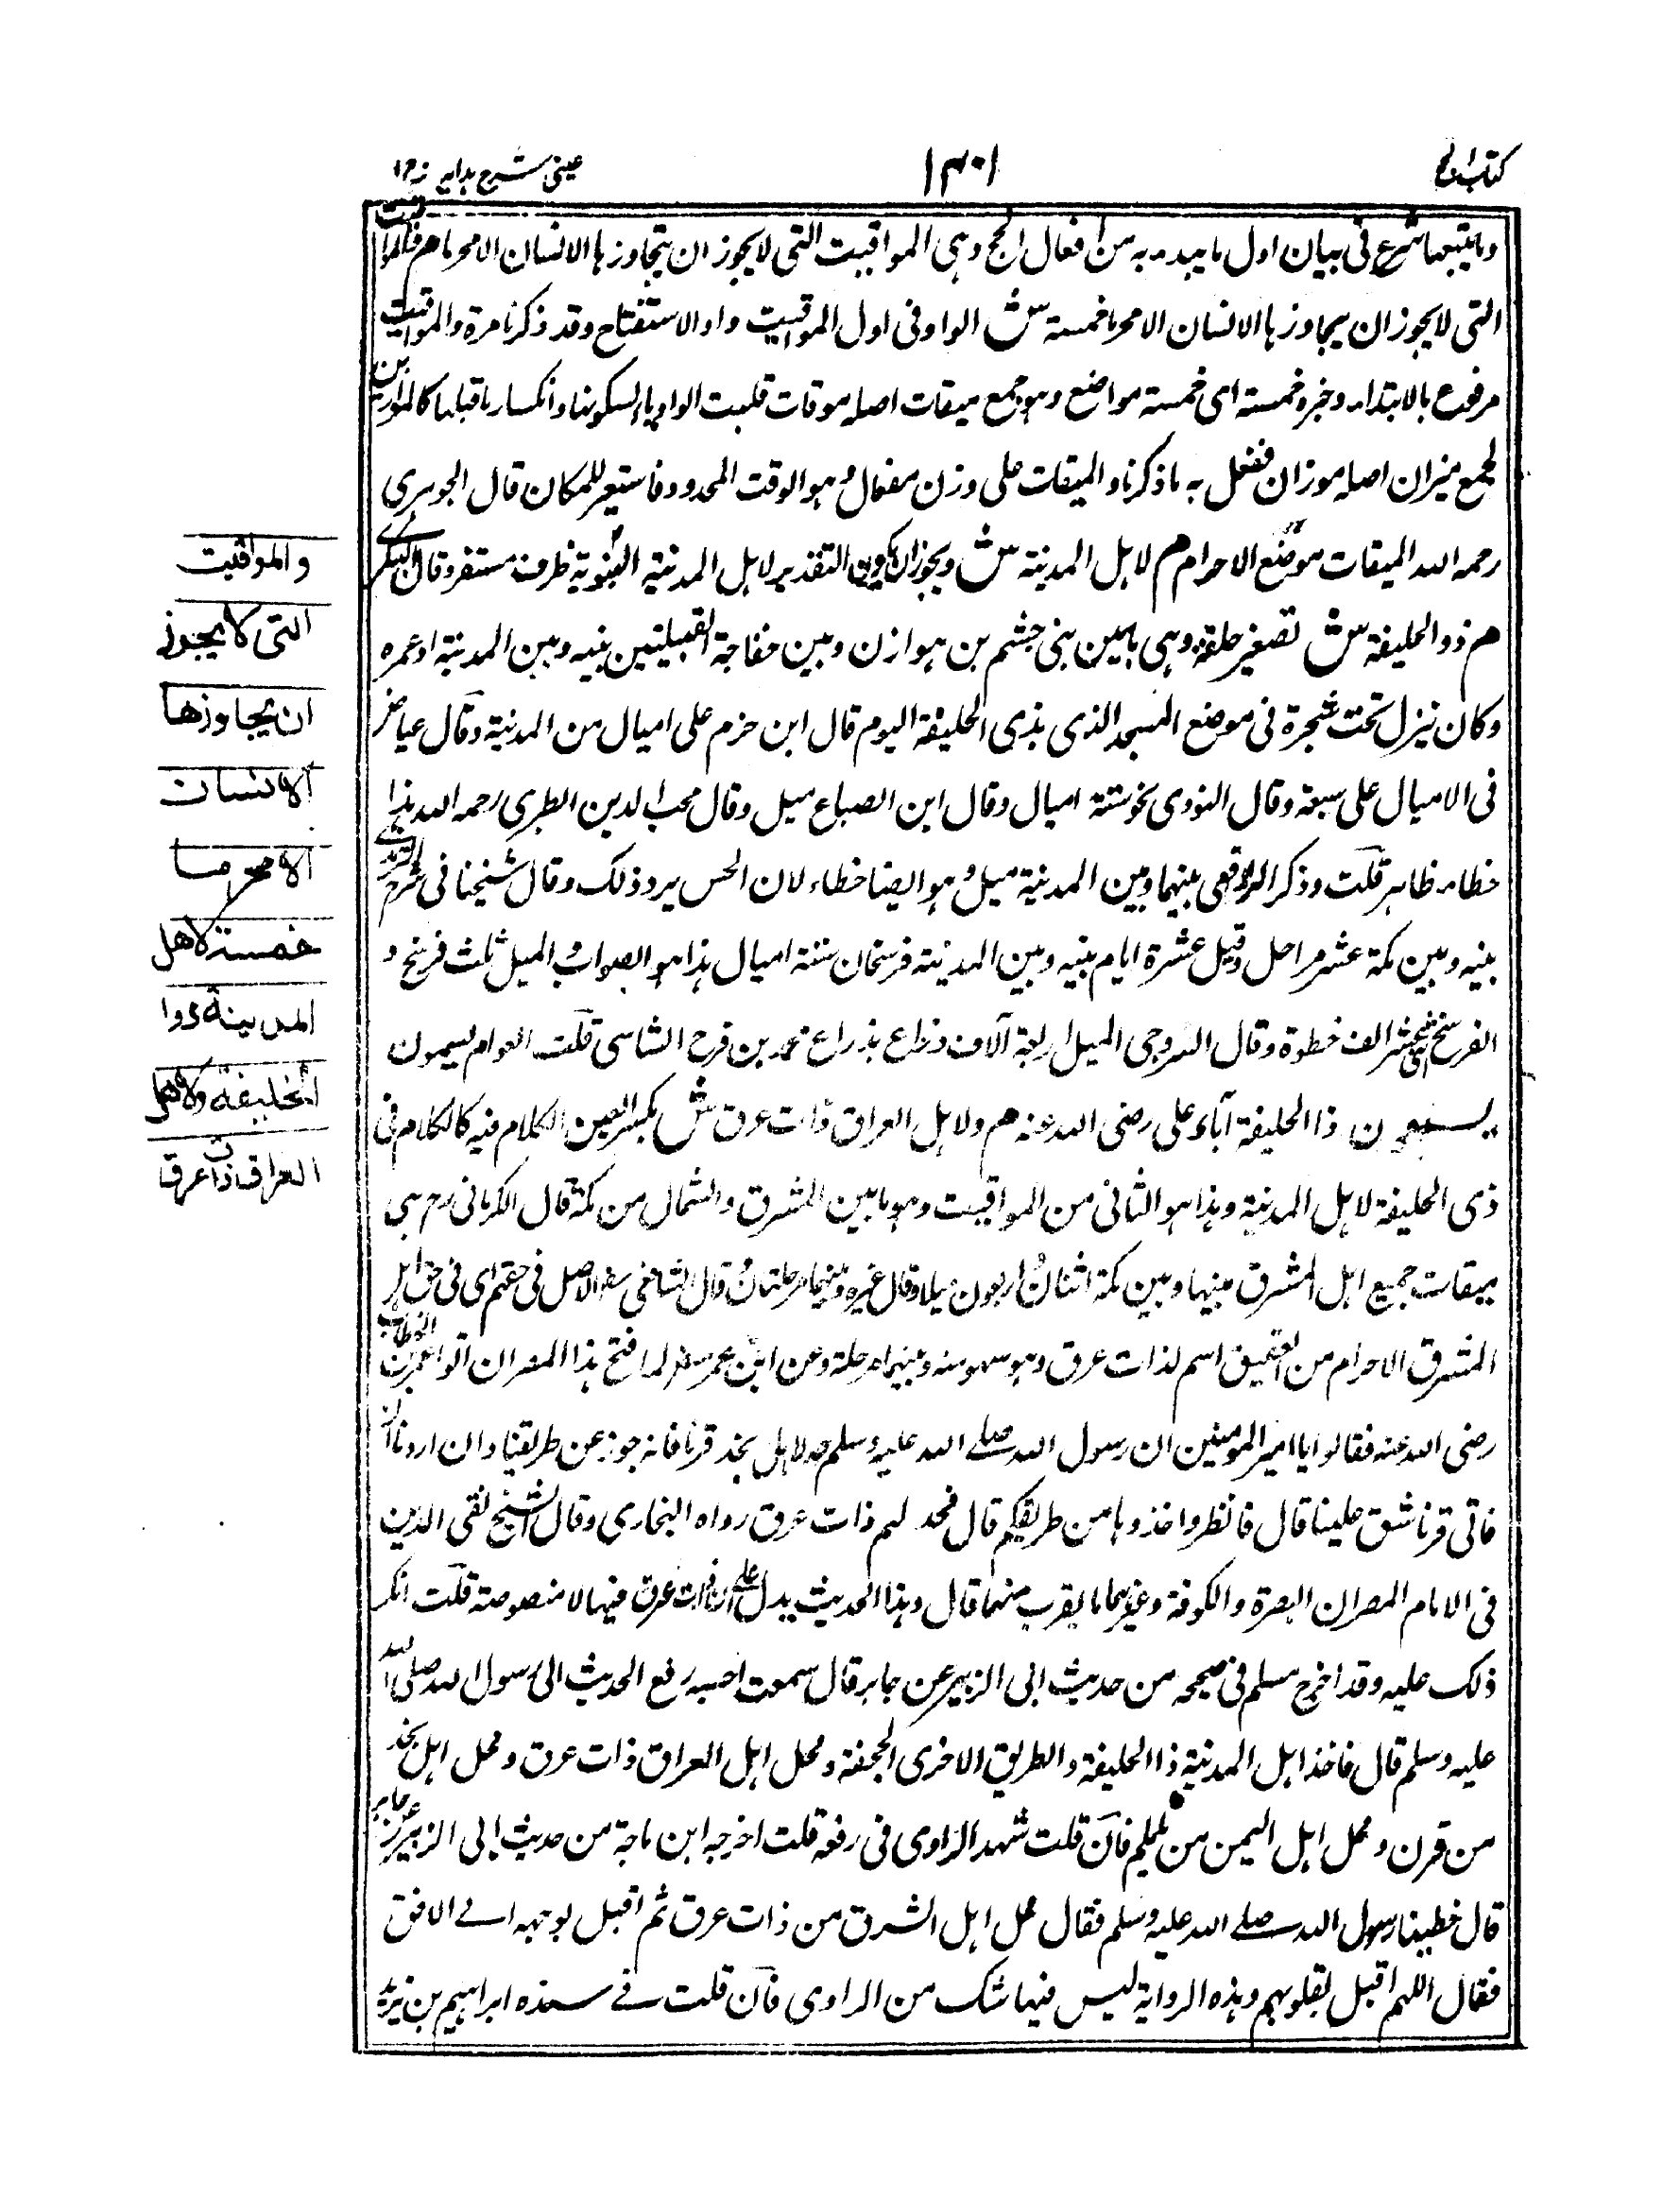 كتاب الحج
١٣٠١
عينى شرح هدايه ج ١
وما يتبعها شرع فى بيان اول ما يبدء به من افعال الحج وهى المواقيت التى لا يجوز ان يتجاوزها الانسان الا محرما هم والمواقيت
التى لا يجوز ان يجاوزها الانسان الا محرما خمسة ش الواو فى اول المواقيت واو الاستفتاح وقد ذكرنا مرة والمواقيت
مرفوع بالابتداء وخبره خمسة اى خمسة مواضع وهو جمع ميقات اصله موقات قلبت الواو ياء لسكونها وانكسار ما قبلها كالموازين
لجمع ميزان اصله موزان ففعل به ما ذكرنا والميقات على وزن مفعال وهو الوقت المحدود فاستعير للمكان قال الجوهرى
رحمه الله الميقات موضع الاحرام هم لاهل المدينة ش ويجوز ان يكون التقدير لاهل المدينة النبوية ظرف مستقر وقال البكرى
هم ذو الحليفة ش تصغير حلقة وهى ما بين بنى جشم بن هوازن وبين خفاجة القبيلتين بينه وبين المدينة او عمره
وكان ينزل تحت شجرة فى موضع المسجد الذى بذى الحليفة اليوم قال ابن حزم على اميال من المدينة وقال عياض
فى الاميال على سبعة وقال النووى نحو ستة اميال وقال ابن الصباغ ميل وقال محب الدين الطبرى رحمه الله هذا
خطاء ظاهر قلت وذكر الرافعى بينهما وبين المدينة ميل وهو ايضا خطاء لان الحس يرد ذلك وقال شيخنا فى شرح الترمذى
بينه وبين مكة عشر مراحل وقيل عشرة ايام بينه وبين المدينة فرسخان ستة اميال هذا هو الصواب والميل ثلث فرسخ و
الفرسخ اثنى عشر الف خطوة وقال السروجى الميل اربعة آلاف ذراع بذراع محمد بن فرح الشاسى قلت العوام يسمون
يسمون ذا الحليفة آباء على رضى الله عنه هم ولاهل العراق ذات عرق ش بكسر العين الكلام فيه كالكلام فى
ذى الحليفة لاهل المدينة وهذا هو الثانى من المواقيت وهو ما بين المشرق والشمال من مكة قال الكرمانى رح هى
ميقات جميع اهل المشرق بينها وبين مكة اثنان واربعون ميلا وقال غيره وبينهما مرحلتان وقال الشافعى الاصل فى حقهم اى فى حق اهل
المشرق الاحرام من العقيق اسم لذات عرق وهو سهو منه وبينهما مرحلة وعن ابن عمر لما فتح هذا المصران اتوا عمر بن الخطاب
رضى الله عنه فقالوا يا امير المومنين ان رسول الله صلے الله عليه وسلم حد لاهل نجد قرنا فانه جوز عن طريقنا وان اردنا ان
فاتى قرنا شق علينا قال فانظروا حذوها من طريقكم قال فحد لهم ذات عرق رواه البخارى وقال الشيخ تقى الدين
فى الامام المصران البصرة والكوفة وغيرهما ما يقرب منهما قال وهذا الحديث يدل على ان ذات عرق فيها لا منصوصة قلت انكر
ذلك عليه وقد اخرج مسلم فى صحيحه من حديث ابى الزبير عن جابر قال سمعت احسبه رفع الحديث الى رسول الله صلى الله
عليه وسلم قال فاخذ اهل المدينة ذا الحليفة والطريق الاخرى الجحفة ومحل اهل العراق ذات عرق ومحل اهل نجد
من قرن ومحل اهل اليمن من يلملم فان قلت شهد الراوى فى رفعه قلت اخرجه ابن ماجة من حديث ابى الزبير عن جابر
قال خطبنا رسول الله صلے الله عليه وسلم فقال محل اهل الشرق من ذات عرق ثم اقبل بوجهه الے الافق
فقال اللهم اقبل بقلوبهم وهذه الرواية ليس فيها شك من الراوى فان قلت فے سنده ابراهيم بن يزيد
والمواقيت
التى لا يجوز
ان يجاوزها
الانسان
الا محرما
خمسة لاهل
المدينة ذوا
الحليفة ولاهل
العراق ذات عرق